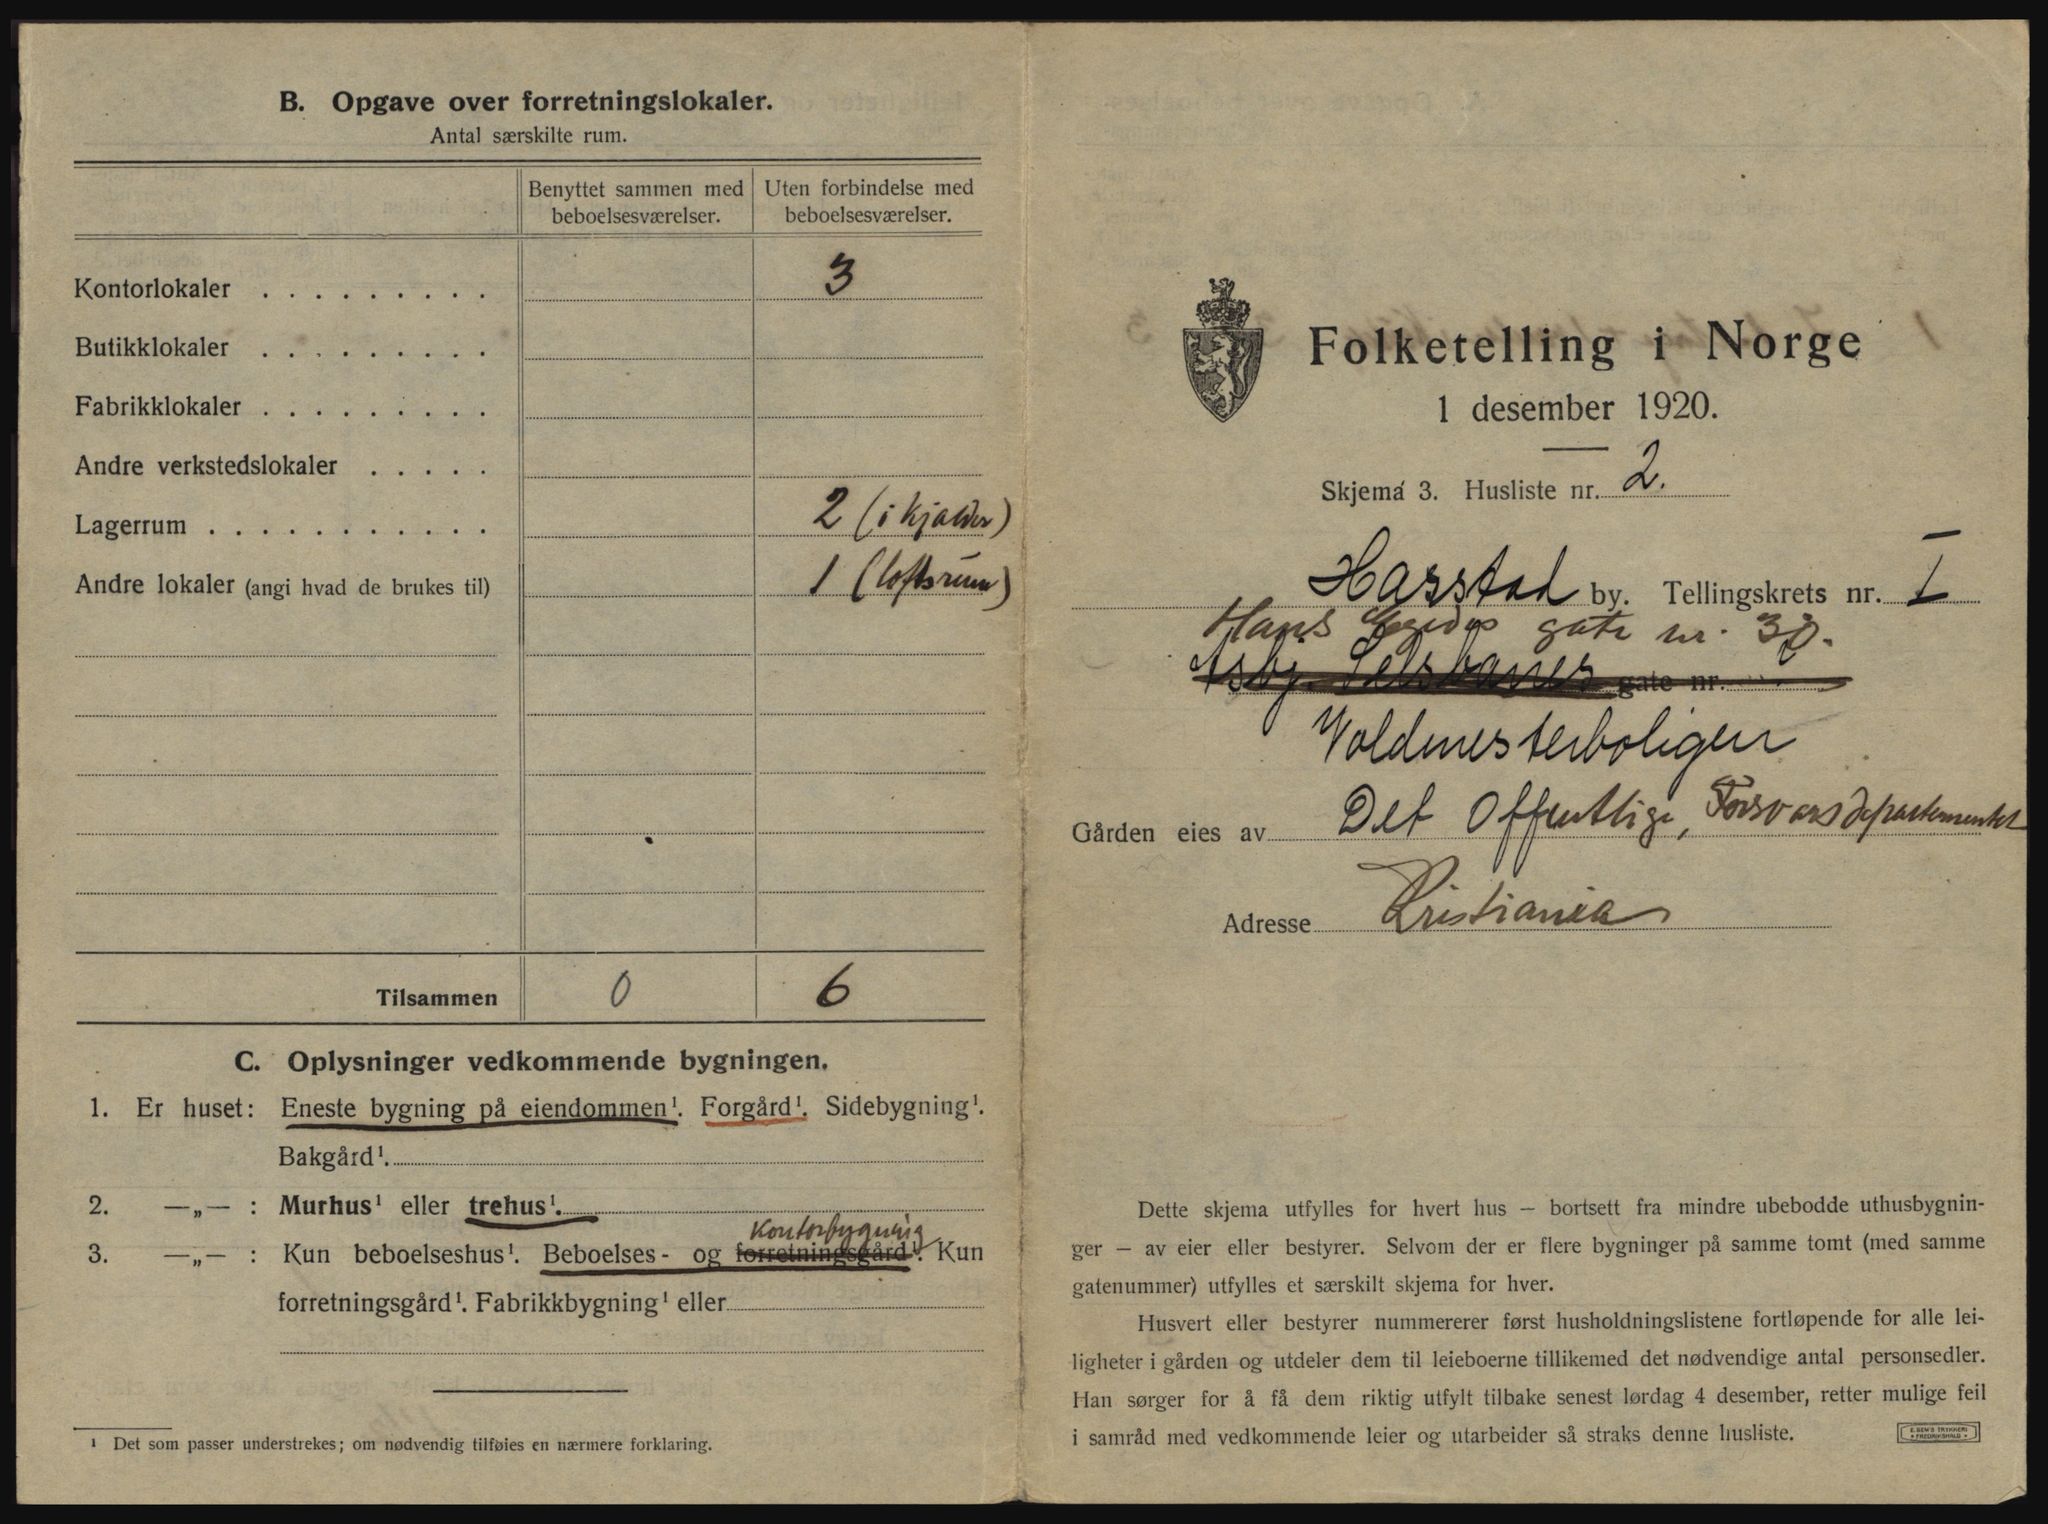 B. Opgave over forretningslokaler.
Antal særskilte rum.
Benyttet sammen med beboelsesværelser.
Uten forbindelse med beboelsesværelser.
Kontorlokaler . . . . . . . . . 3
Butikklokaler . . . . . . . . .
Fabrikklokaler . . . . . . . . .
Andre verkstedslokaler . . . . .
Lagerrum . . . . . . . . . . . 2 (i kjælder)
Andre lokaler (angi hvad de brukes til) 1 (loftsrum)
Tilsammen 0 6
C. Oplysninger vedkommende bygningen.
1. Er huset: Eneste bygning på eiendommen¹. Forgård¹. Sidebygning¹.
Bakgård¹.
2. —„— : Murhus¹ eller trehus¹.
Kontorbygning
3. —„— : Kun beboelseshus¹. Beboelses- og forretningsgård¹. Kun
forretningsgård¹. Fabrikkbygning¹ eller
¹ Det som passer understrekes; om nødvendig tilføies en nærmere forklaring.
Folketelling i Norge
1 desember 1920.
Skjema 3. Husliste nr. 2.
Harstad by. Tellingskrets nr. I
Hans Egedes gate nr. 30.
Asbj. Selsbanes gate nr.
Voldmesterboligen
Gården eies av Det Offentlige, Forsvarsdepartementet
Adresse Kristiania
Dette skjema utfylles for hvert hus — bortsett fra mindre ubebodde uthusbygnin-
ger — av eier eller bestyrer. Selvom der er flere bygninger på samme tomt (med samme
gatenummer) utfylles et særskilt skjema for hver.
Husvert eller bestyrer nummererer først husholdningslistene fortløpende for alle lei-
ligheter i gården og utdeler dem til leieboerne tillikemed det nødvendige antal personsedler.
Han sørger for å få dem riktig utfylt tilbake senest lørdag 4 desember, retter mulige feil
i samråd med vedkommende leier og utarbeider så straks denne husliste.
E. SEM'S TRYKKERI
FREDRIKSHALD